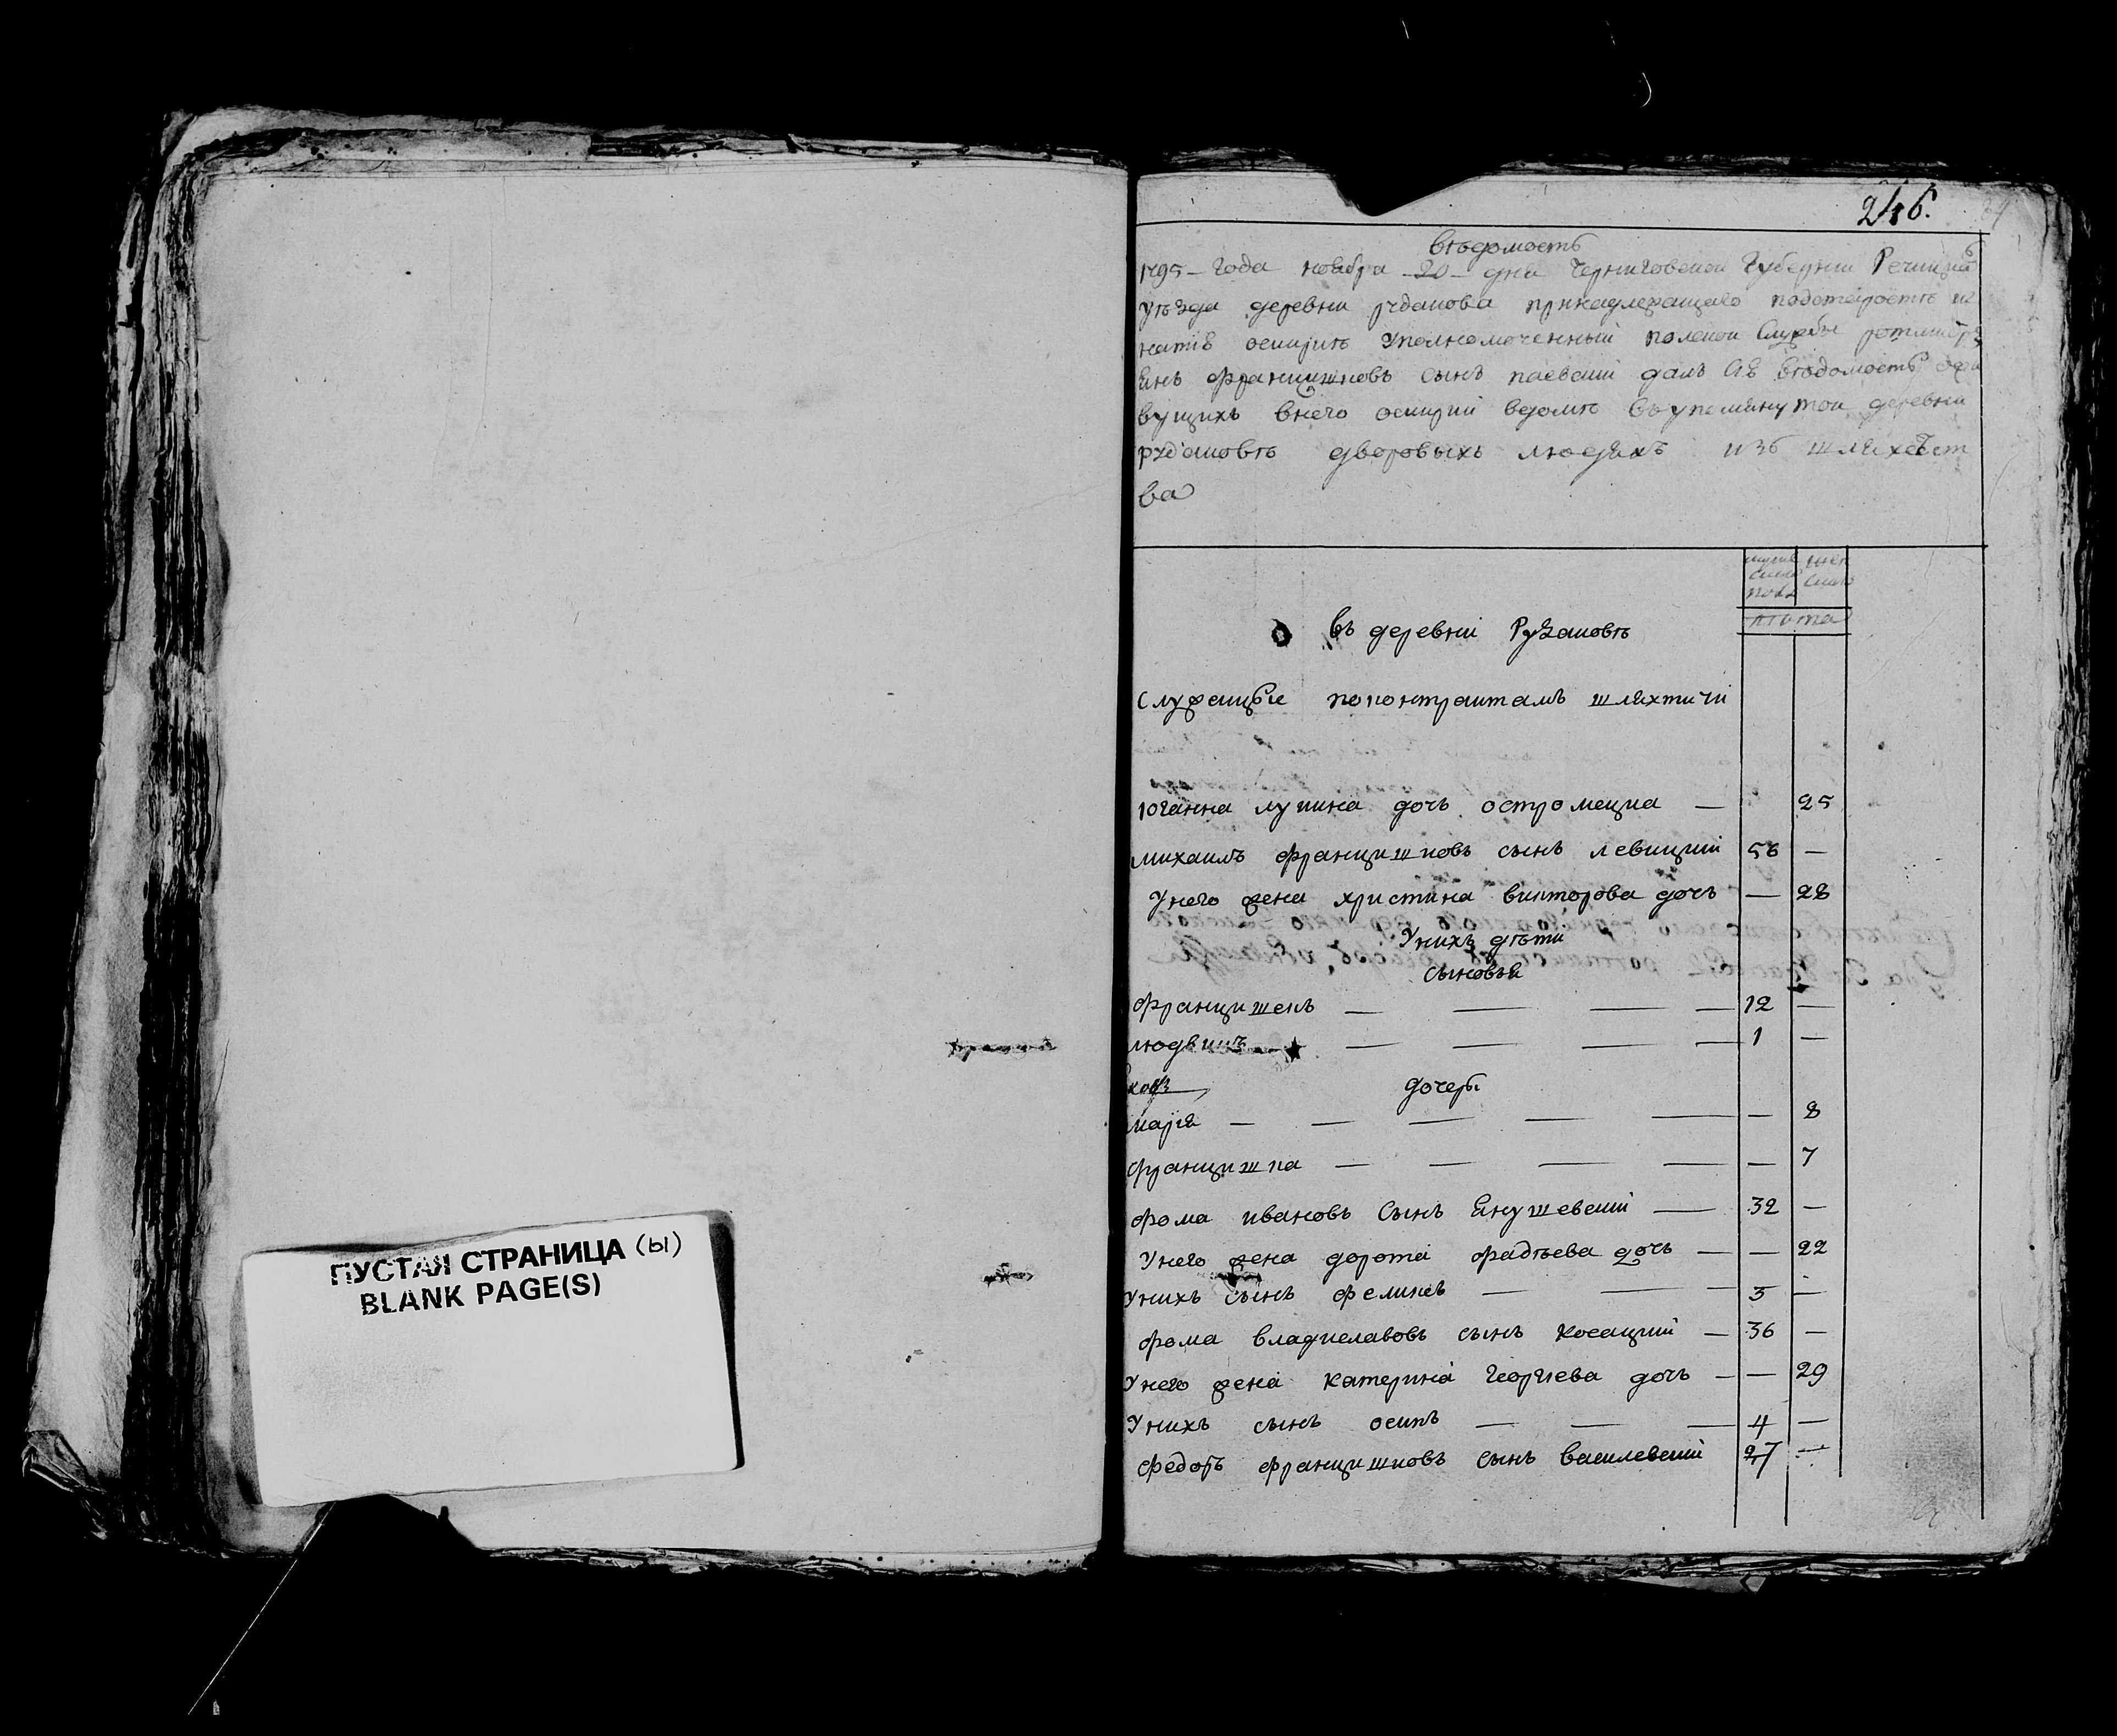 ПУСТАЯ СТРАНИЦА (Ы)
BLANK PAGE(S)
246.
вѣдомость
1795 – года ноября – 20 – дня Черниговской Губернии Речицкой
уѣзда деревни принадлежащаго
уполномоченный полской службы ротмистръ
Янъ Францишковъ сынъ даль сію вѣдомость
вущихъ внего въ упомянутой деревни
рудаковѣ дворовыхъ людяхъ изъ шляхест
ва
мужескаго пола
женскаго
лѣта
въ деревни Рудаковѣ
Служащые поконтрактамъ шляхтичи
Юганна лукина дочь остромецка — 25
михаилъ францишковъ сынъ левицкий 56 —
Унего жена христина викторова дочь — 28
Унихъ дѣти
сыновья
францишекъ — — — — 12 —
людвикъ — — — — 1 —
дочеры
марія — — — — — — 8
францишка — — — — — 7
фома ивановъ Сынъ Янушевский — 32 —
Унего жена дорота фадѣева дочь — — 22
Унихъ сынъ феликсъ — — 3 —
фома владиславовъ сынъ косацкий — 36 —
Унего жена катерина георгіева дочь — — 29
Унихъ сынъ осипъ — — — 4 —
федоръ францишковъ сынъ василевский 27 —